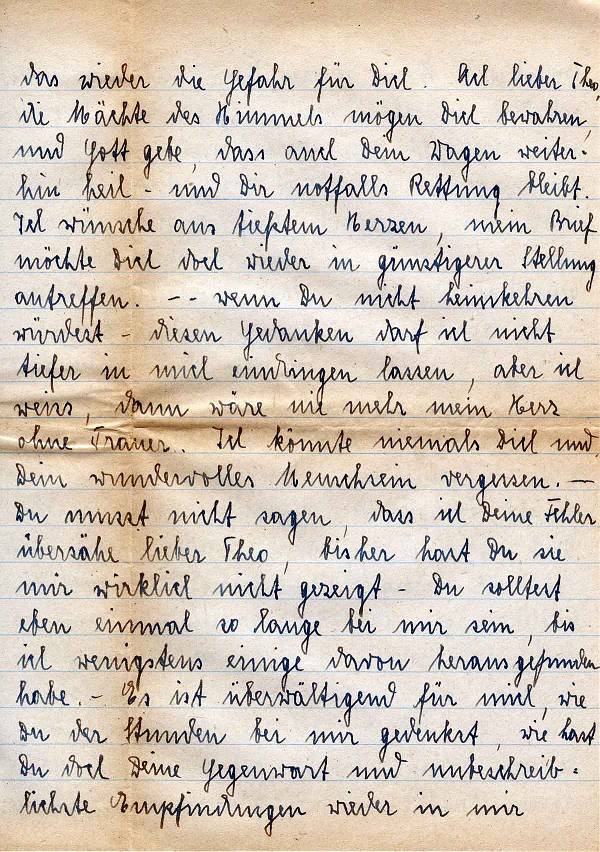 das wieder die Gefahr für Dich. Ach lieber Theo,
die Mächte des Himmels mögen Dich bewahren,
und Gott gebe, dass auch Dein Wagen weiter-
hin heil - und Dir notfalls Rettung bleibt.
Ich wünsche aus tiefstem Herzen, mein Brief
möchte Dich doch wieder in günstigerer Stellung
antreffen. -- wenn Du nicht heimkehren
würdest - diesen Gedanken darf ich nicht
tiefer in mich eindringen lassen, aber ich
weiss, dann wäre nie mehr mein Herz
ohne Trauer. Ich könnte niemals Dich und
Dein wundervolles Menschsein vergessen. -
Du musst nicht sagen, dass ich Deine Fehler
übersähe lieber Theo, bisher hast Du sie
mir wirklich nicht gezeigt - Du solltest
eben einmal so lange bei mir sein, bis
ich wenigstens einige davon herausgefunden
habe. - Es ist überwältigend für mich, wie
Du der Stunden bei mir gedenkst, wie hast
Du doch Deine Gegenwart und unbeschreib-
lichste Empfindungen wieder in mir